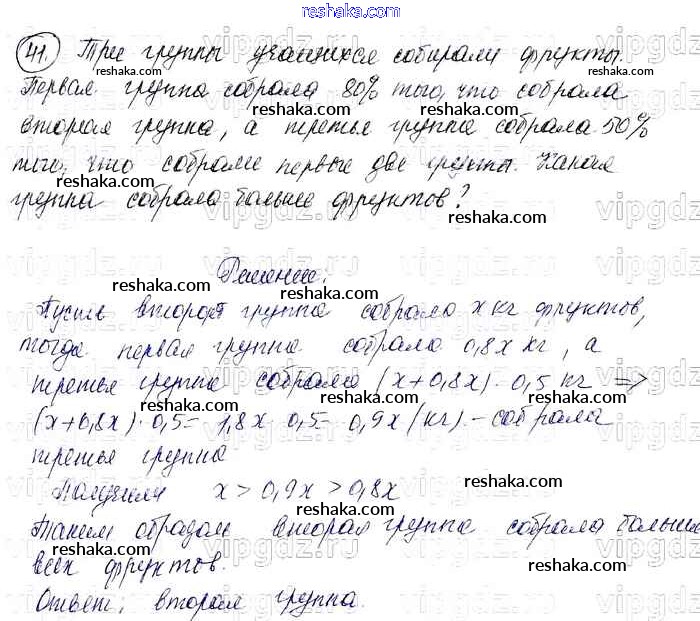 reshaka.com
41 Три группы учащихся собирали фрукты.
reshaka.com reshaka.com
Первая группа собрала 80% того, что собрала
reshaka.com reshaka.com
вторая группа, а третья группа собрала 50%
reshaka.com
того, что собрали первые две группы. Какая
reshaka.com reshaka.com
группа собрала больше фруктов?
reshaka.com
Решение:
reshaka.com reshaka.com
Пусть вторая группа собрала x кг фруктов,
reshaka.com
тогда первая группа собрала 0,8x кг, а
reshaka.com
третья группа собрала (x+0,8x)·0,5 кг =>
reshaka.com reshaka.com
(x+0,8x)·0,5= 1,8x·0,5= 0,9x (кг) – собрала
reshaka.com
третья группа
reshaka.com
Получили x > 0,9x > 0,8x
reshaka.com reshaka.com
Таким образом вторая группа собрала больше
reshaka.com
всех фруктов.
reshaka.com reshaka.com
Ответ: вторая группа.